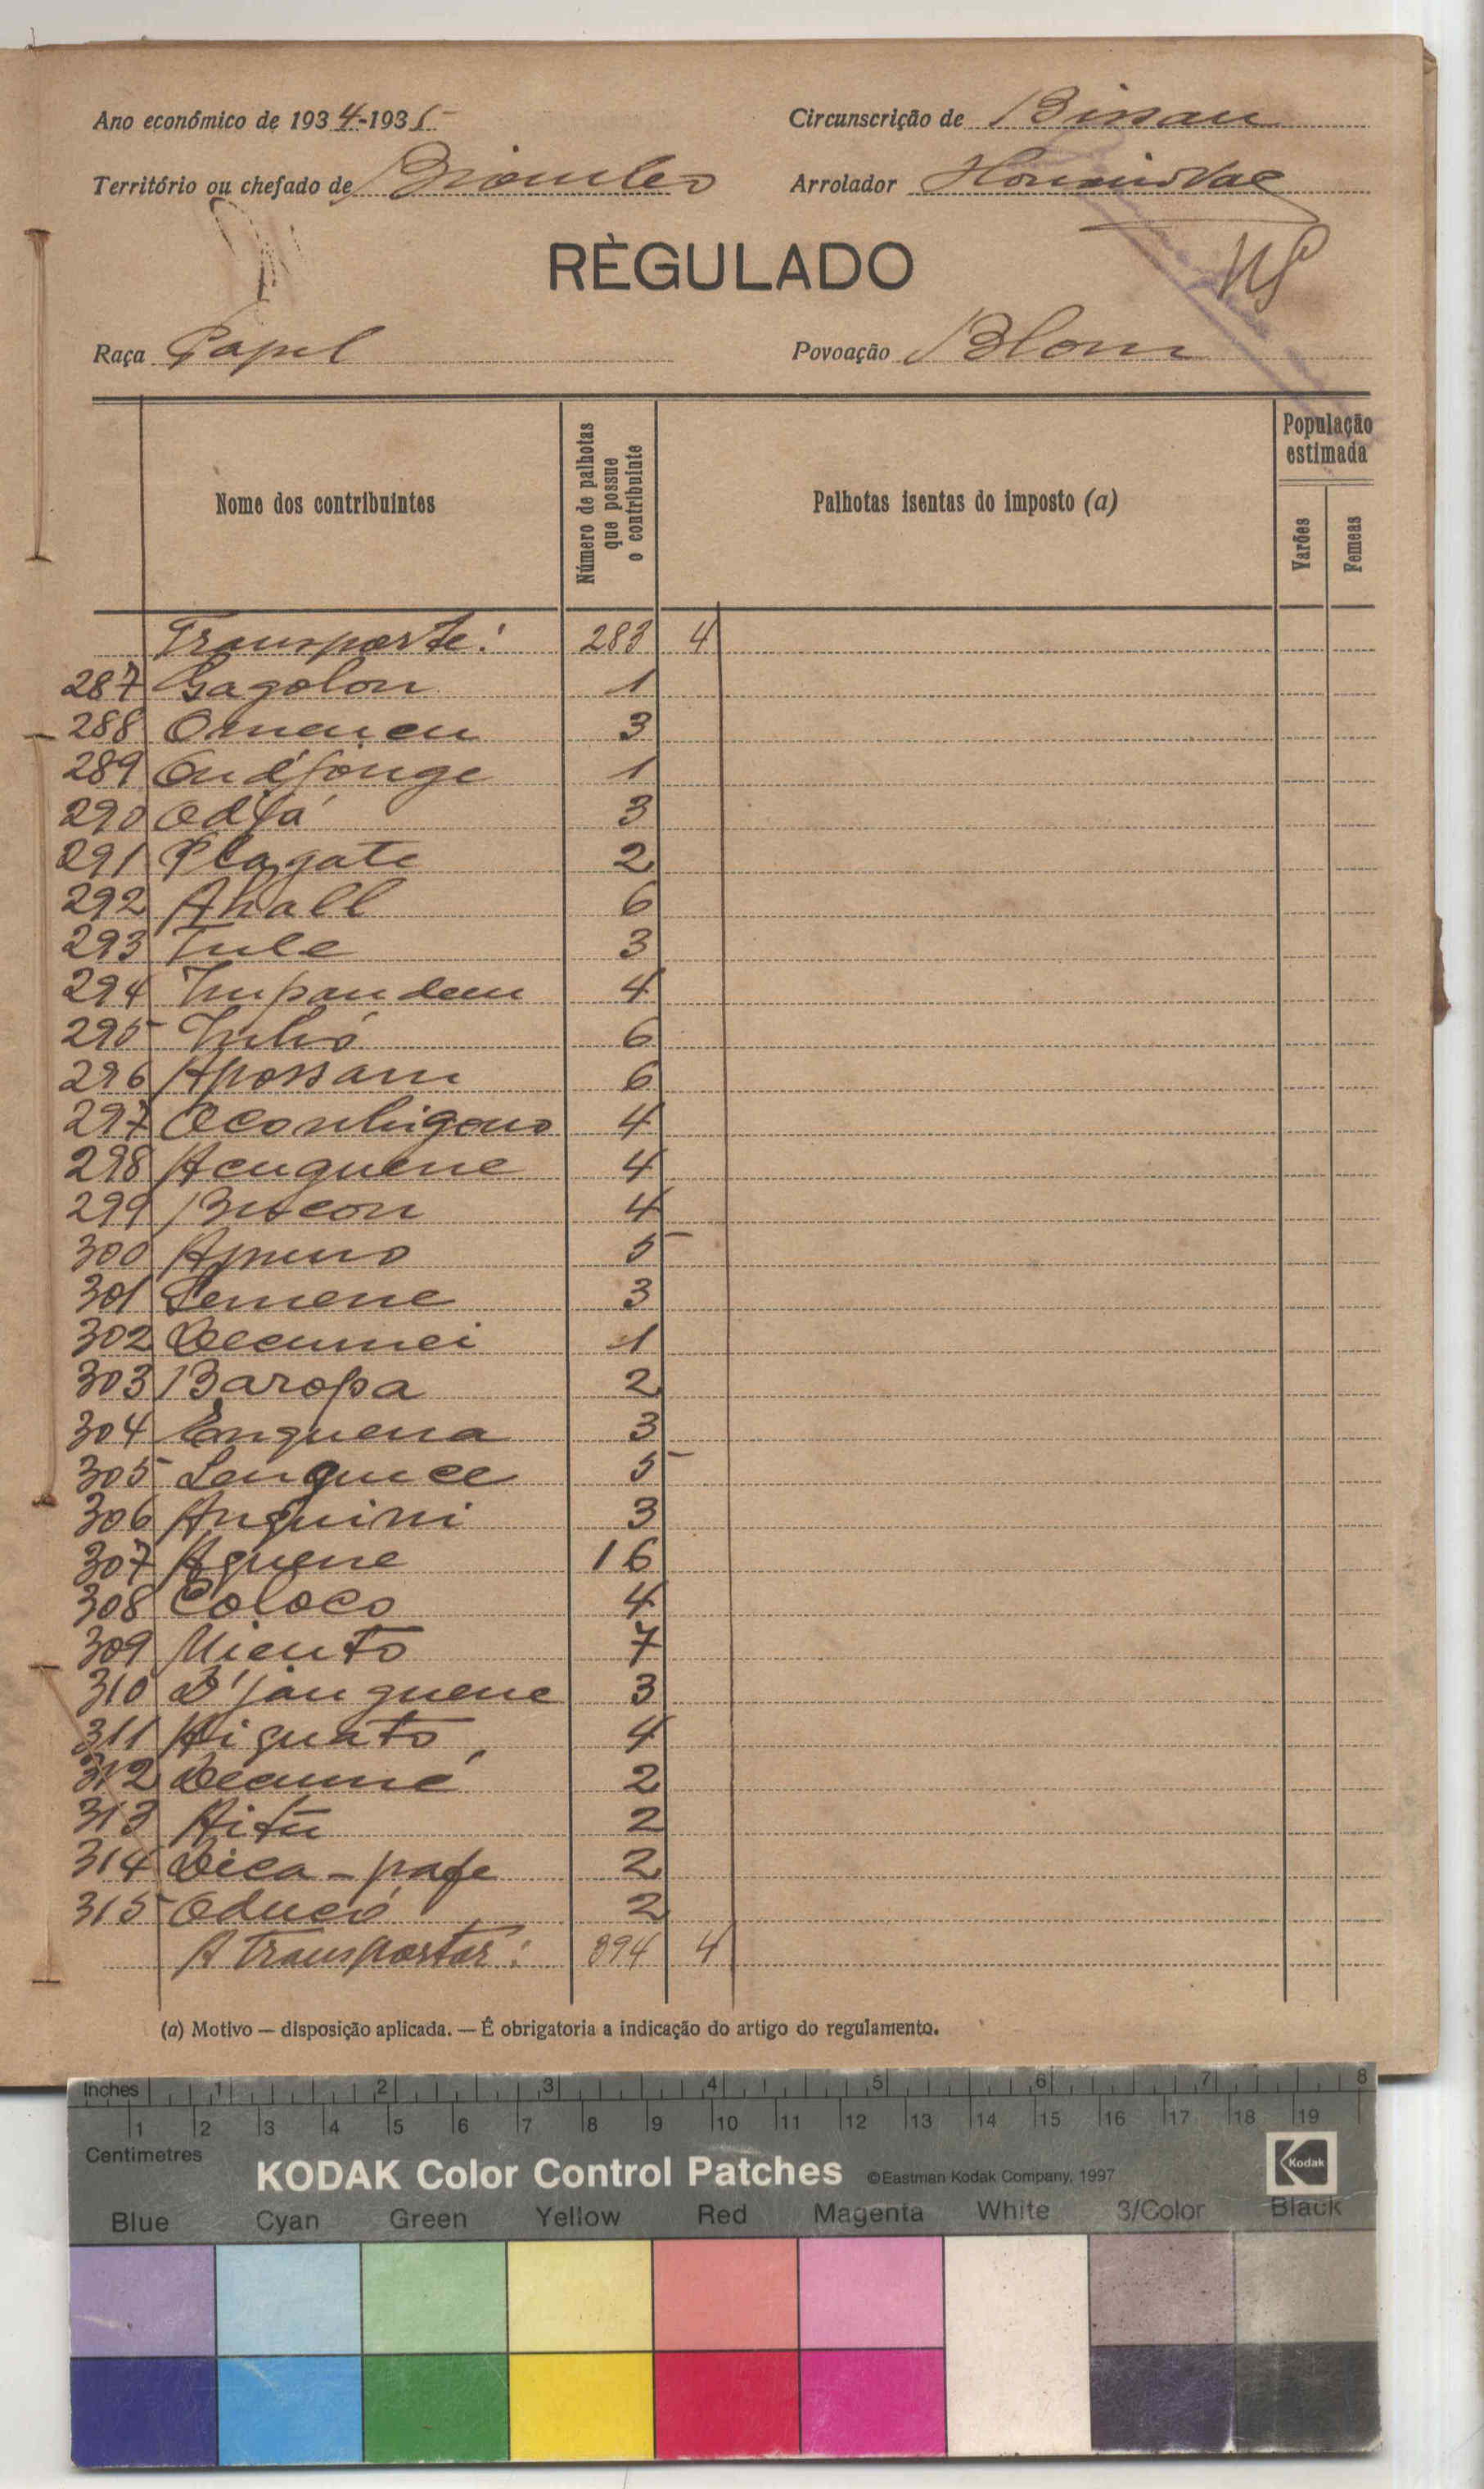 Ano económico de 1934-1935 Circunscrição de Bissau
Território ou chefado de Biombo Arrolador
RÈGULADO
Raça Papel Povoação Blom
Nome dos contribuintes Número de palhotas que possue o contribuinte Palhotas isentas do imposto (a) População estimada
Varões Femeas
Transporte: 283 4
287 Gagolon 1
288 3
289 Ondjonge 1
290 Odjá 3
291 Plagate 2
292 Ahall 6
293 Tule 3
294 Impandem 4
295 6
296 Apossam 6
297 4
298 4
299 Biscon 4
300 5
301 Semene 3
302 1
303 Baropa 2
304 Enquena 3
305 5
306 Anquini 3
307 Aquene 16
308 Coloco 4
309 7
310 D'janguene 3
311 4
312 2
313 2
314 2
315 2
A transportar: 394 4
(a) Motivo — disposição aplicada. — É obrigatoria a indicação do artigo do regulamento.
Inches 1 2 3 4 5 6 7 8
1 2 3 4 5 6 7 8 9 10 11 12 13 14 15 16 17 18 19
Centimetres
KODAK Color Control Patches ©Eastman Kodak Company, 1997 Kodak
Blue Cyan Green Yellow Red Magenta White 3/Color Black